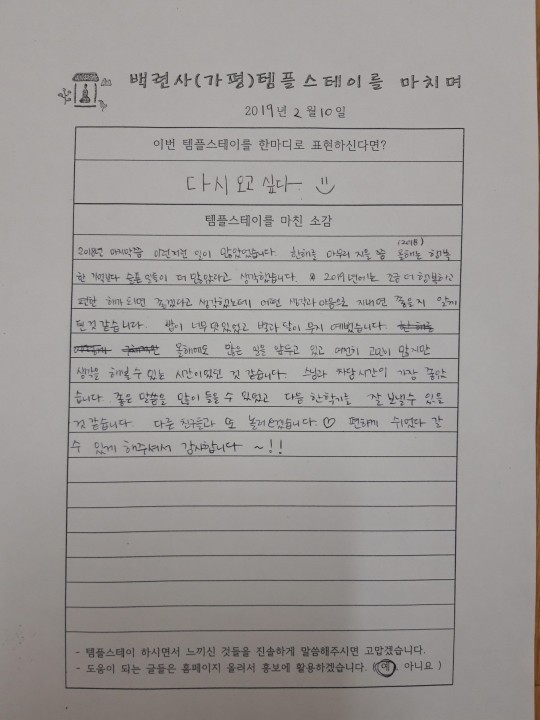 백련사(가평)템플스테이를 마치며
2019년 2월 10일
이번 템플스테이를 한마디로 표현하신다면?
다시 오고 싶다
템플스테이를 마친 소감
(2018)
2018년 마지막쯤 이런저런 일이 많았었습니다. 한해를 마무리 지을 쯤 올해는 행복
한 기억보다 슬픈 일들이 더 많았다고 생각했습니다. 2019년에는 조금 더 행복하고
편한 해가 되면 좋겠다고 생각했는데 어떤 생각과 마음으로 지내면 좋을지 알게
된 것 같습니다. 밥이 너무 맛있었고 밤과 달이 무지 예뻤습니다. 한 해를
올해에도 많은 일을 앞두고 있고 여전히 고민이 많지만
생각을 해볼 수 있는 시간이었던 것 같습니다. 스님과 차담시간이 가장 좋았
습니다. 좋은 말씀을 많이 들을 수 있었고 다음 한학기를 잘 보낼 수 있을
것 같습니다. 다른 친구들과 또 놀러오겠습니다.♡ 편하게 쉬었다 갈
수 있게 해주셔서 감사합니다 ~!!
- 템플스테이 하시면서 느끼신 것들을 진솔하게 말씀해주시면 고맙겠습니다.
- 도움이 되는 글들은 홈페이지 올려서 홍보에 활용하겠습니다. ( 예 아니요 )